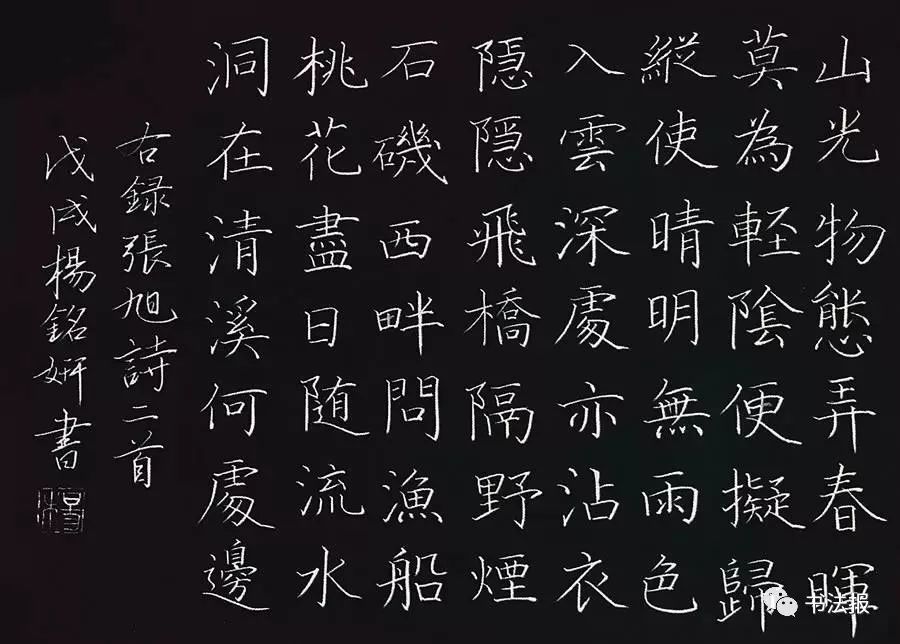 山光物態弄春暉
莫為輕陰便擬歸
縱使晴明無雨色
入雲深處亦沾衣
隱隱飛橋隔野煙
石磯西畔問漁船
桃花盡日随流水
洞在清溪何處邊
右錄張旭詩二首
戊戌楊銘妍書
书法报